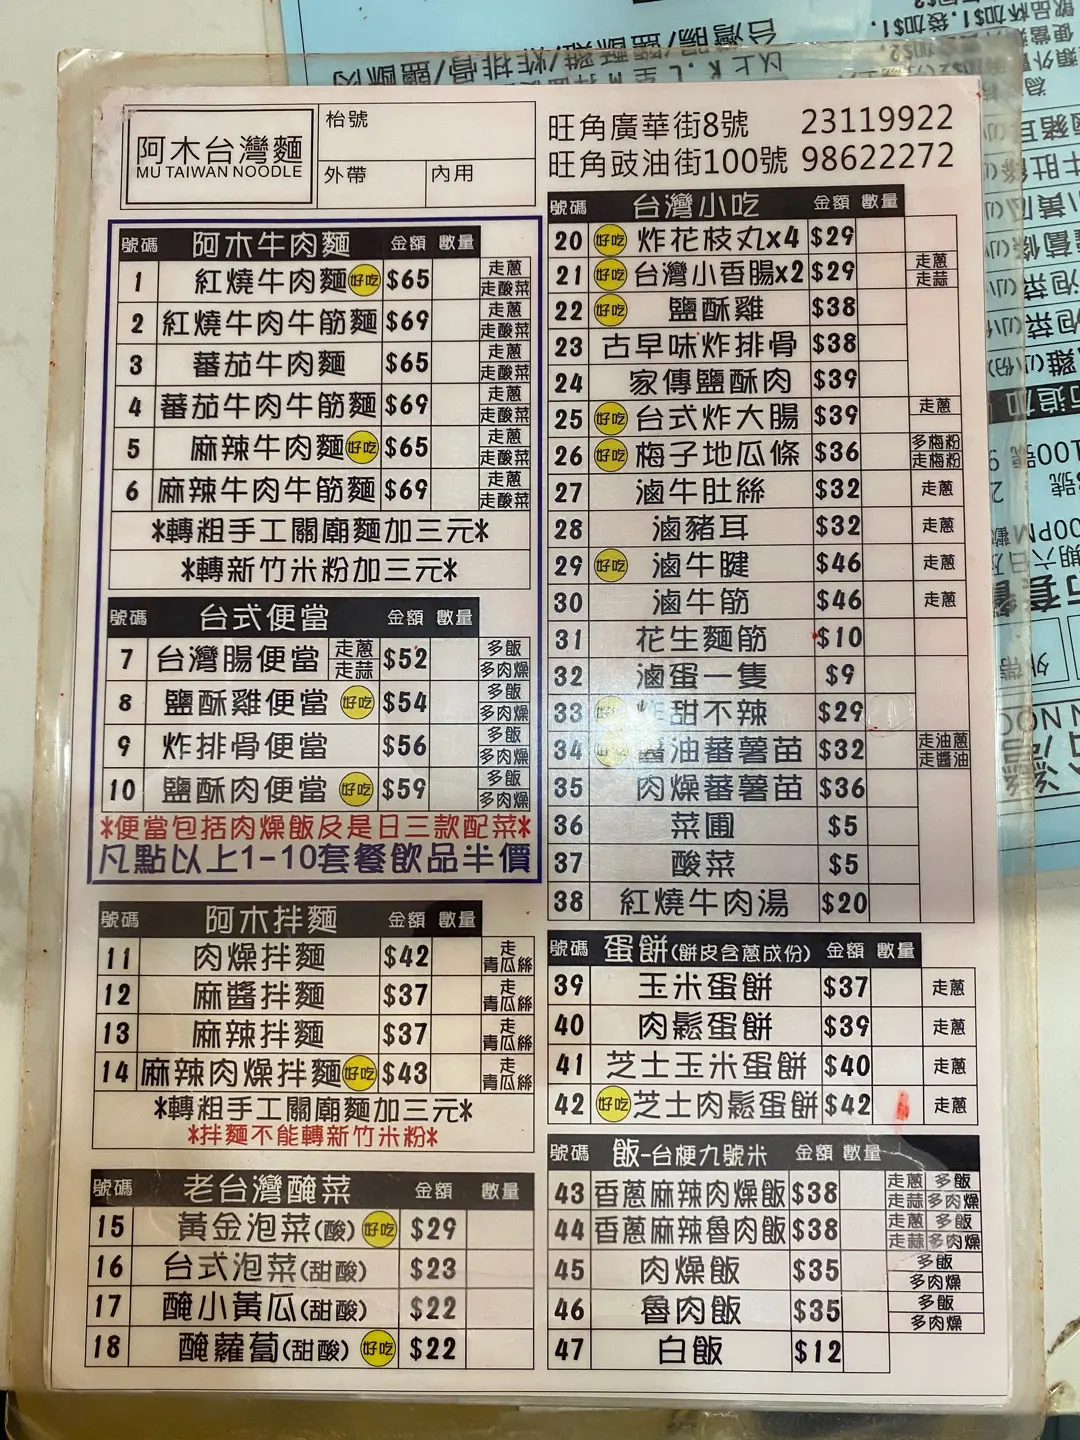 阿木台灣麵
MU TAIWAN NOODLE
枱號
外帶 內用
旺角廣華街8號 23119922
旺角豉油街100號 98622272
號碼 阿木牛肉麵 金額 數量
1 紅燒牛肉麵 好吃 $65 走蔥 走酸菜
2 紅燒牛肉牛筋麵 $69 走蔥 走酸菜
3 蕃茄牛肉麵 $65 走蔥 走酸菜
4 蕃茄牛肉牛筋麵 $69 走蔥 走酸菜
5 麻辣牛肉麵 好吃 $65 走蔥 走酸菜
6 麻辣牛肉牛筋麵 $69 走蔥 走酸菜
*轉粗手工關廟麵加三元*
*轉新竹米粉加三元*
號碼 台式便當 金額 數量
7 台灣腸便當 走蔥 走蒜 $52 多飯 多肉燥
8 鹽酥雞便當 好吃 $54 多飯 多肉燥
9 炸排骨便當 $56 多飯 多肉燥
10 鹽酥肉便當 好吃 $59 多飯 多肉燥
*便當包括肉燥飯及是日三款配菜*
凡點以上1-10套餐飲品半價
號碼 阿木拌麵 金額 數量
11 肉燥拌麵 $42 走青瓜絲
12 麻醬拌麵 $37 走青瓜絲
13 麻辣拌麵 $37 走青瓜絲
14 麻辣肉燥拌麵 好吃 $43 走青瓜絲
*轉粗手工關廟麵加三元*
*拌麵不能轉新竹米粉*
號碼 老台灣醃菜 金額 數量
15 黃金泡菜(酸) 好吃 $29
16 台式泡菜(甜酸) $23
17 醃小黃瓜(甜酸) $22
18 醃蘿蔔(甜酸) 好吃 $22
號碼 台灣小吃 金額 數量
20 好吃 炸花枝丸x4 $29
21 好吃 台灣小香腸x2 $29 走蔥 走蒜
22 好吃 鹽酥雞 $38
23 古早味炸排骨 $38
24 家傳鹽酥肉 $39
25 好吃 台式炸大腸 $39 走蔥
26 好吃 梅子地瓜條 $36 多梅粉 走梅粉
27 滷牛肚絲 $32 走蔥
28 滷豬耳 $32 走蔥
29 好吃 滷牛腱 $46 走蔥
30 滷牛筋 $46 走蔥
31 花生麵筋 $10
32 滷蛋一隻 $9
33 好吃 炸甜不辣 $29
34 好吃 醬油蕃薯苗 $32 走油蔥 走醬油
35 肉燥蕃薯苗 $36
36 菜圃 $5
37 酸菜 $5
38 紅燒牛肉湯 $20
號碼 蛋餅(餅皮含蔥成份) 金額 數量
39 玉米蛋餅 $37 走蔥
40 肉鬆蛋餅 $39 走蔥
41 芝士玉米蛋餅 $40 走蔥
42 好吃 芝士肉鬆蛋餅 $42 走蔥
號碼 飯-台梗九號米 金額 數量
43 香蔥麻辣肉燥飯 $38 走蔥 多飯 走蒜 多肉燥
44 香蔥麻辣魯肉飯 $38 走蔥 多飯 走蒜 多肉燥
45 肉燥飯 $35 多飯 多肉燥
46 魯肉飯 $35 多飯 多肉燥
47 白飯 $12